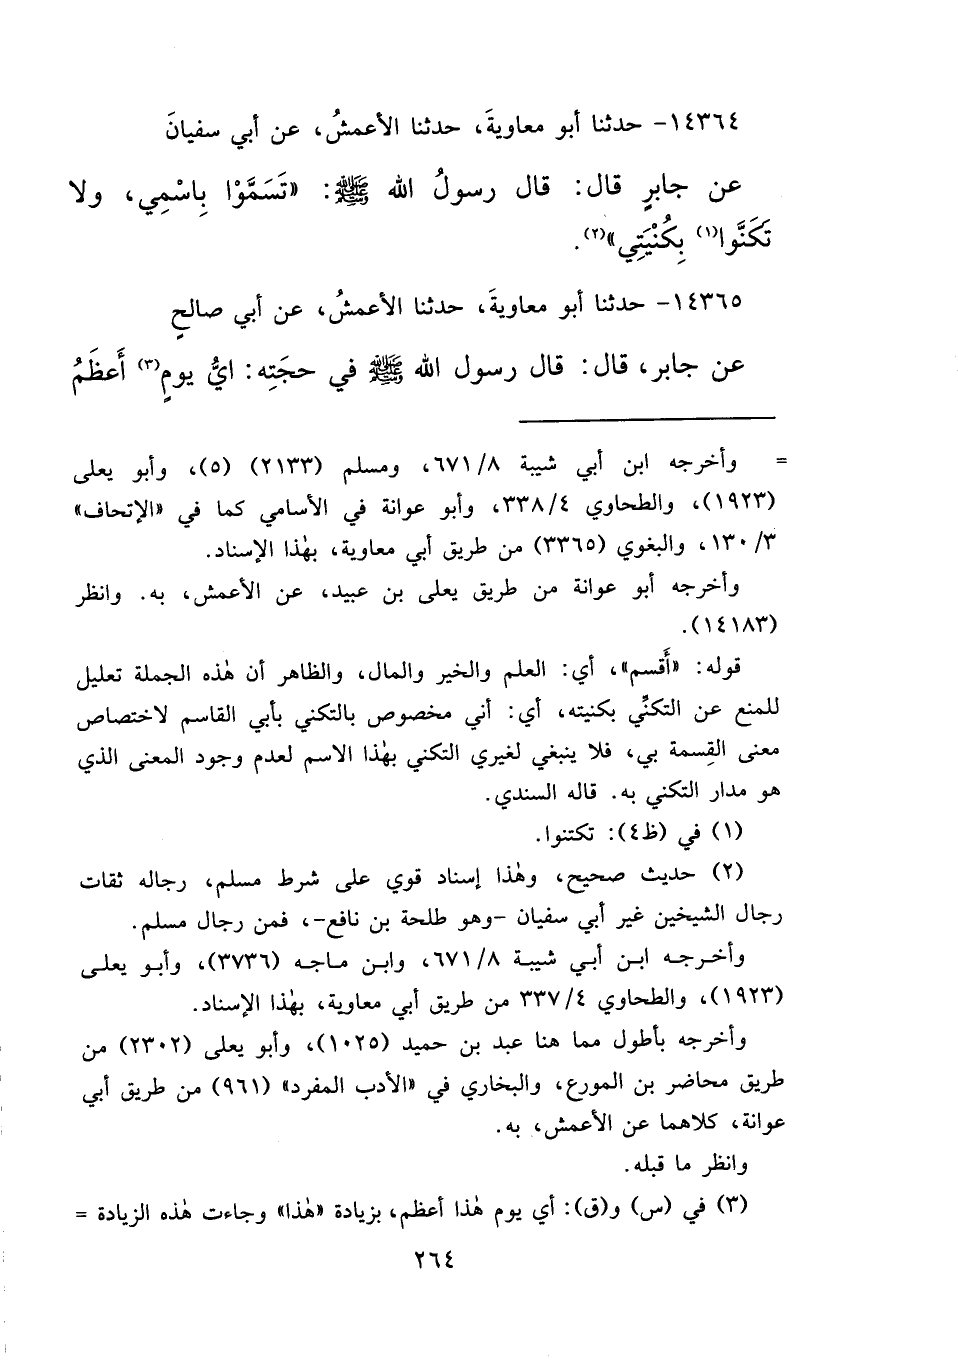 ١٤٣٦٤- حدثنا أبو معاويةَ، حدثنا الأعمشُ، عن أبي سفيانَ
عن جابرٍ قال: قال رسولُ الله ﷺ: «تَسَمَّوْا بِاسْمِي، ولا
تَكَنَّوا(١) بِكُنْيَتِي»(٢).
١٤٣٦٥- حدثنا أبو معاويةَ، حدثنا الأعمشُ، عن أبي صالحٍ
عن جابر، قال: قال رسول الله ﷺ في حجَتِه: ايُّ يومٍ(٣) أَعظَمُ
= وأخرجه ابن أبي شيبة ٦٧١/٨، ومسلم (٢١٣٣) (٥)، وأبو يعلى
(١٩٢٣)، والطحاوي ٣٣٨/٤، وأبو عوانة في الأسامي كما في «الإتحاف»
١٣٠/٣، والبغوي (٣٣٦٥) من طريق أبي معاوية، بهٰذا الإسناد.
وأخرجه أبو عوانة من طريق يعلى بن عبيد، عن الأعمش، به. وانظر
(١٤١٨٣).
قوله: «أَقسم»، أي: العلم والخير والمال، والظاهر أن هٰذه الجملة تعليل
للمنع عن التكنِّي بكنيته، أي: أني مخصوص بالتكني بأبي القاسم لاختصاص
معنى القِسمة بي، فلا ينبغي لغيري التكني بهٰذا الاسم لعدم وجود المعنى الذي
هو مدار التكني به. قاله السندي.
(١) في (ظ٤): تكتنوا.
(٢) حديث صحيح، وهٰذا إسناد قوي على شرط مسلم، رجاله ثقات
رجال الشيخين غير أبي سفيان -وهو طلحة بن نافع-، فمن رجال مسلم.
وأخرجه ابن أبي شيبة ٦٧١/٨، وابن ماجه (٣٧٣٦)، وأبو يعلى
(١٩٢٣)، والطحاوي ٣٣٧/٤ من طريق أبي معاوية، بهٰذا الإسناد.
وأخرجه بأطول مما هنا عبد بن حميد (١٠٢٥)، وأبو يعلى (٢٣٠٢) من
طريق محاضر بن المورع، والبخاري في «الأدب المفرد» (٩٦١) من طريق أبي
عوانة، كلاهما عن الأعمش، به.
وانظر ما قبله.
(٣) في (س) و(ق): أي يوم هٰذا أعظم، بزيادة «هٰذا» وجاءت هٰذه الزيادة =
٢٦٤